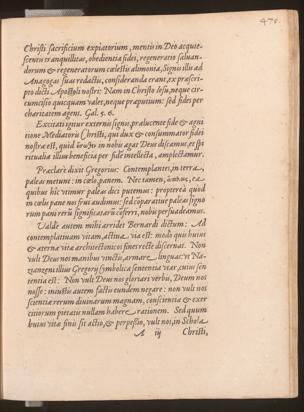 470.
Christi sacrificium expiatorium, mentis in Deo acquie-
scentis tranquillitas, obedientia fidei, regeneratio saluan-
dorum & regeneratorum cælestis alimonia, Signis illis ad
Anagogas suas redactis, consideranda erant, ex præscri-
pto dicti Apostoli nostri: Nam in Christo Iesu, neque cir-
cumcisio quicquam valet, neque præputium: sed fides per
charitatem agens. Gal. 5. 6.
Excitati igitur externis signis, prælucente fide & agni
tione Mediatoris Christi, qui dux & consummator fidei
nostræ est, quid in nobis agat Deus discamus, et spi
ritualia illius beneficia per fidē intellecta, amplectamur.
Præclarè dixit Gregorius: Contemplanter, in terra,
paleas metunt: in cœlo, panem. Nec tamen, ea
quibus hîc vtimur paleas dici putemus: propterea quòd
in cœlo pane nos frui audimus: sed cōparatiue paleas signo
rum pani rerū significatarū cōferri, nobis persuadeamus.
Ualde autem mihi arridet Bernardi dictum: Ad
contemplatiuam vitam, actiua via est: modò quis huius
& æternæ vitæ architectonicos fines rectè discernat. Non
vult Deus nos manibus vinctis, armare linguas: vt Na-
zianzeni illius Gregorij symbolica sententia erat, cuius sen
tentia est: Non vult Deus nos gloriari verbis, Deum nos
nosse: iniustis autem factis eundem negare: non vult nos
scientiæ rerum diuinarum magnam, conscientiæ & exer
citiorum pietatis nullam habere rationem. Sed quum
huius vitæ finis sit actio, & perpessio, vult nos, in Schola
A iij Christi,